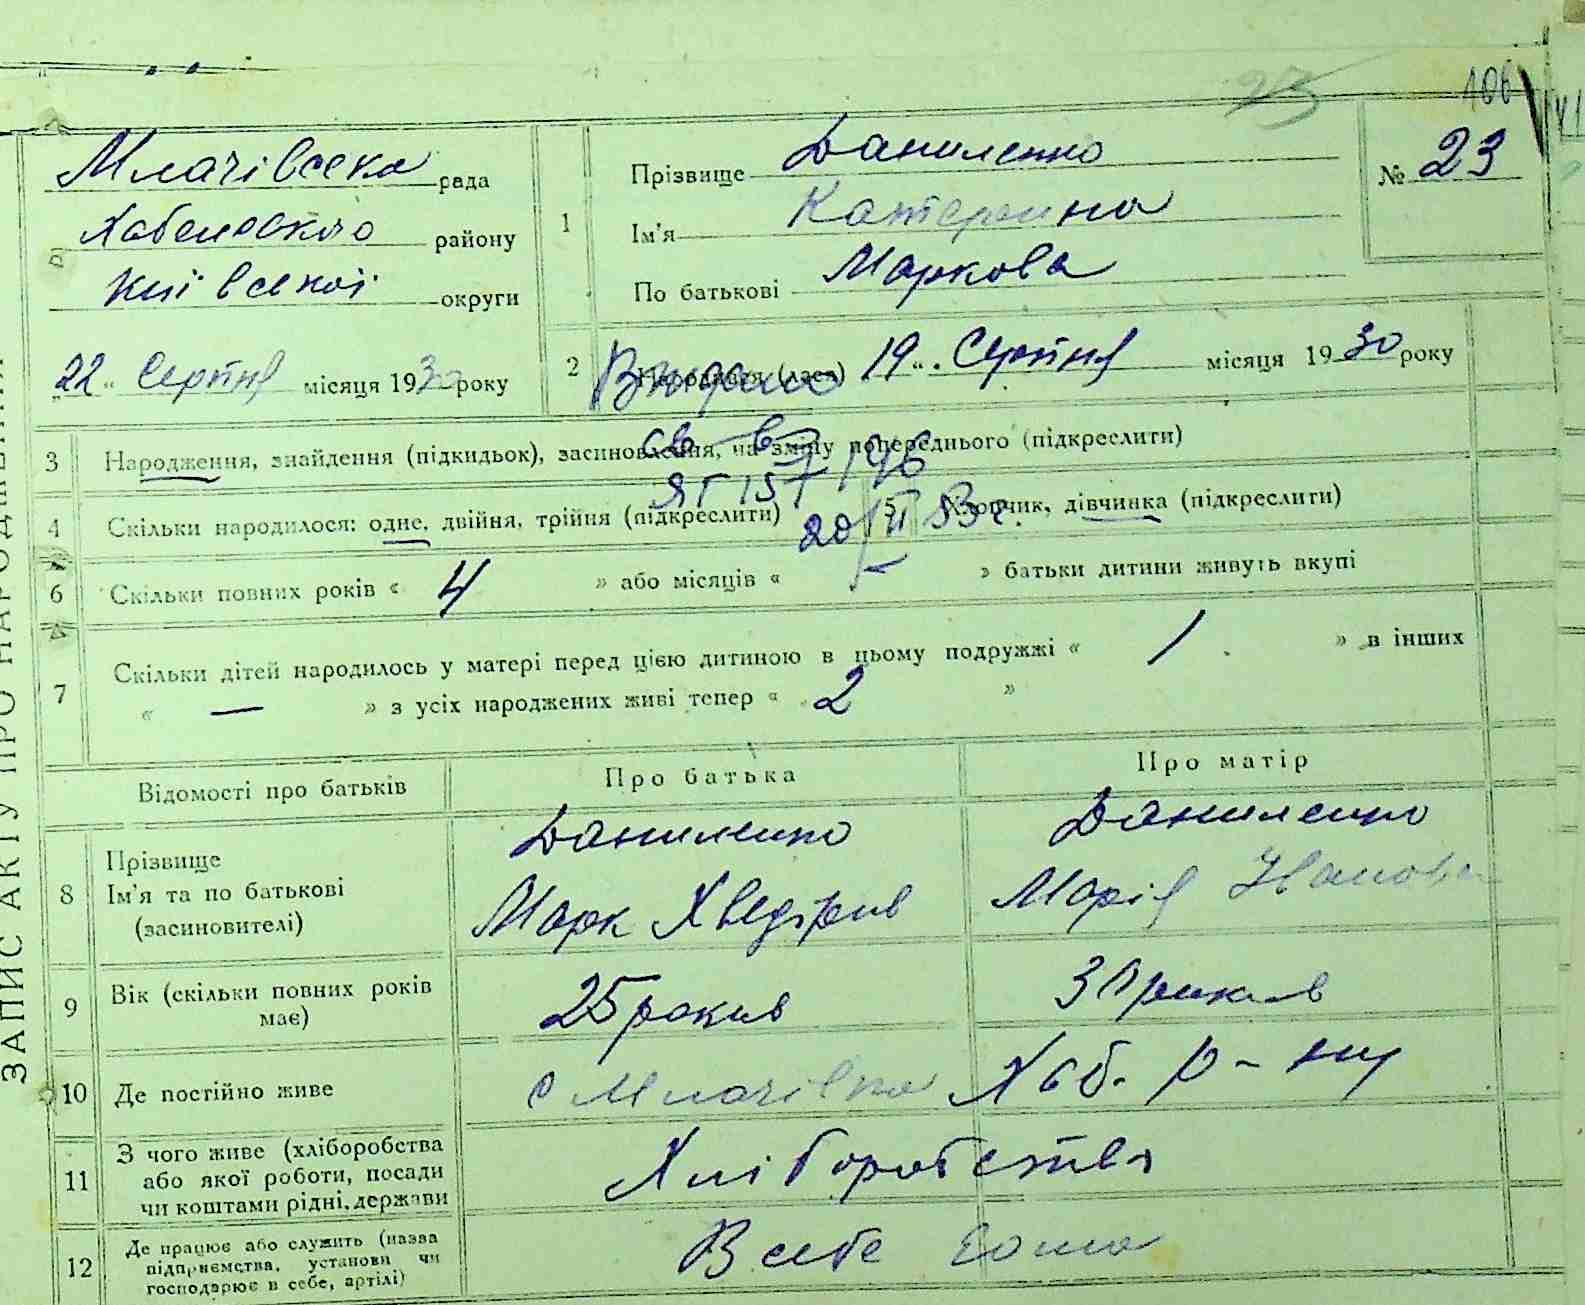 23 106
ЗАПИС АКТУ ПРО НАРОДЖЕННЯ
Млачівсека рада
Хабенського району
Київсекої округи
22 „ Серпня місяця 1930 року
1
Прізвище Даниленко
Ім'я Катерина
По батькові Маркова
№ 23
2 Народився (лася) 19 „ Серпня місяця 1930 року
Видано
св-во
ЯГ 157196
20/II 53 г.
3 Народження, знайдення (підкидьок), засиновлення, на зміну попереднього (підкреслити)
4 Скільки народилося: одне, двійня, трійня (підкреслити) 5 Хлопчик, дівчинка (підкреслити)
6 Скільки повних років « 4 » або місяців « » батьки дитини живуть вкупі
7 Скільки дітей народилось у матері перед цією дитиною в цьому подружжі « 1 » в інших
« — » з усіх народжених живі тепер « 2 »
Відомості про батьків Про батька Про матір
8 Прізвище Даниленко Даниленко
Ім'я та по батькові Марк Хведірив Марія Иванова
(засиновителі)
9 Вік (скільки повних років має) 25 рокив 30 рикив
10 Де постійно живе с Млачівка Хаб. р-ну
11 З чого живе (хліборобства
або якої роботи, посади
чи коштами рідні, держави Хліборобства
12 Де працює або служить (назва
підприємства, установи чи
господарює в себе, артілі) В себе дома